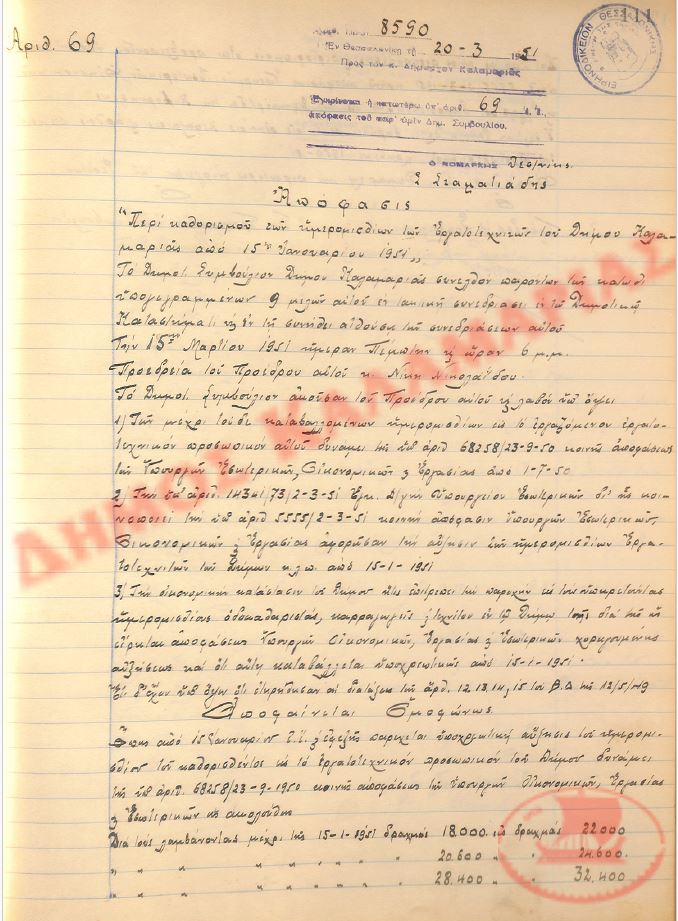 111
Αριθ. 69
Αριθ. Πρωτ. 8590
Ἐν Θεσσαλονίκη τῇ 20-3 1951
Πρὸς τὸν κ. Δήμαρχον Καλαμαριᾶς
Ἐγκρίνεται ἡ κατωτέρω ὑπ' ἀριθ. 69
ἀπόφασις τοῦ παρ' ὑμῖν Δημ. Συμβουλίου.
Ο ΝΟΜΑΡΧΗΣ Θεσ/νίκης
Σ Σταματιάδης
ΕΙΡΗΝΟΔΙΚΕΙΟΝ ΘΕΣΣΑΛΟΝΙΚΗΣ
Ἀπόφασις
"Περί καθορισμού των ημερομισθίων των Εργατοτεχνιτών του Δήμου Καλα-
μαριάς από 15ης Ιανουαρίου 1951,,
Το Δημοτ. Συμβούλιον Δήμου Καλαμαριάς συνελθόν παρόντων των κάτωθι
υπογεγραμμένων 9 μελών αυτού εν τακτική συνεδριάσει εν τω Δημοτικώ
Καταστήματι και εν τη συνήθει αιθούση των συνεδριάσεων αυτού
Την 15ην Μαρτίου 1951 ημέραν Πέμπτην και ώραν 6 μ.μ.
Προεδρεία του Προέδρου αυτού κ. Νίκη Νικολαΐδου.
Το Δημοτ. Συμβούλιον ακούσαν του Προέδρου αυτού και λαβόν υπ' όψει
1) Των μέχρι τούδε καταβαλλομένων ημερομισθίων εις το εργαζόμενον εργατο-
τεχνικόν προσωπικόν αυτού δυνάμει της υπ' αριθ 68258/23-9-50 κοινής αποφάσεως
των Υπουργών Εσωτερικών, Οικονομικών & Εργασίας από 1-7-50
2) Την υπ' αριθ. 14341/73/2-3-51 Εγκ. Δ/γήν Υπουργείου Εσωτερικών δι' ης κοι-
νοποιεί την υπ' αριθ 5555/2-3-51 κοινήν απόφασιν Υπουργών Εσωτερικών,
Οικονομικών & Εργασίας αφορώσαν την αύξησιν των ημερομισθίων Εργα-
τοτεχνιτών των Δήμων κ.λ.π. από 15-1-1951
3) Την οικονομικήν κατάστασιν του Δήμου ήτις επιτρέπει την παροχήν εις τους υπηρετούντας
ημερομισθίους οδοκαθαριστάς, καρραγωγείς & τεχνίτας εν τω Δήμω της διά της ως
είρηται αποφάσεως Υπουργών Οικονομικών, Εργασίας & Εσωτερικών χορηγουμένης
αυξήσεως και ότι αύτη καταβάλλεται υποχρεωτικώς από 15-1-1951.
Έτι δ' έχον υπ' όψιν ότι ετηρήθησαν αι διατάξεις της αρθ. 12, 13, 14, 15 του Β.Δ της 12/5/49
Αποφαίνεται Ομοφώνως
Όπως από 15 Ιανουαρίου ε.έ. & εφεξής παρέχεται υποχρεωτική αύξησις του ημερομι-
σθίου του καθορισθέντος εις το εργατοτεχνικόν προσωπικόν του Δήμου δυνάμει
της υπ' αριθ. 68258/23-9-1950 κοινής αποφάσεως των Υπουργών Οικονομικών, Εργασίας
& Εσωτερικών ως ακολούθως
Διά τους λαμβάνοντας μέχρι της 15-1-1951 δραχμάς 18.000 εις δραχμάς 22.000
" " " " " 20.600 " " 24.600.
" " " " " 28.400 " " 32.400
ΔΗΜΟΣ ΚΑΛΑΜΑΡΙΑΣ